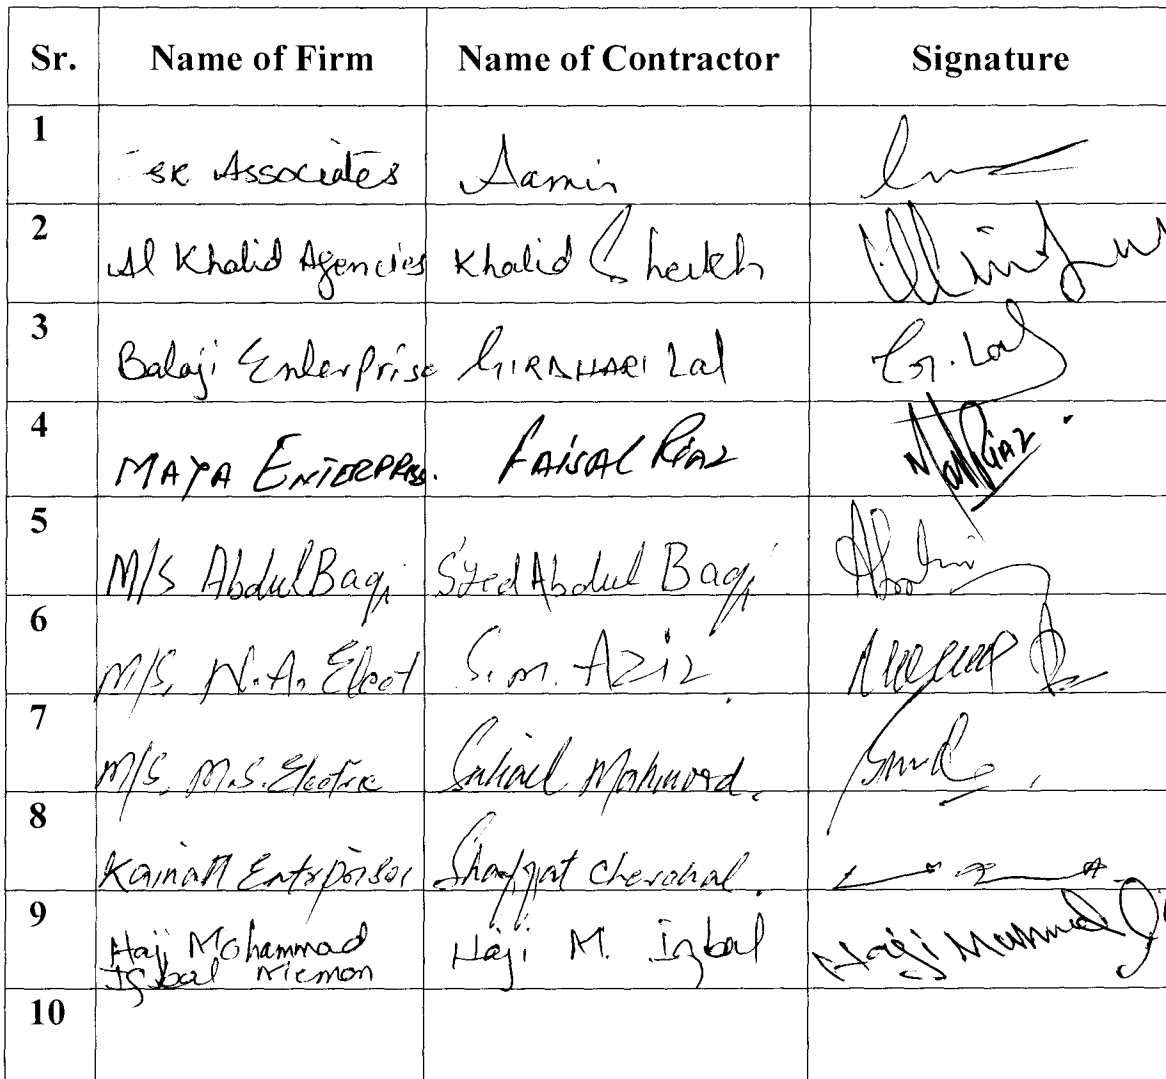 Sr. Name of Firm Name of Contractor Signature
1 SK Associates Aamir
2 Al Khalid Agencies Khalid Sheikh
3 Balaji Enterprise GIRDHARI Lal G. Lal
4 MAYA ENTERPRISE. FAISAL RIAZ Riaz
5 M/S Abdul Baqi Syed Abdul Baqi
6 M/S, N.A. Elect S.m. Aziz
7 M/S, M.S. Electric Suhail Mahmood.
8 Kainatt
9 Haji Mohammad Haji M. Iqbal Haji
Iqbal Memon
10